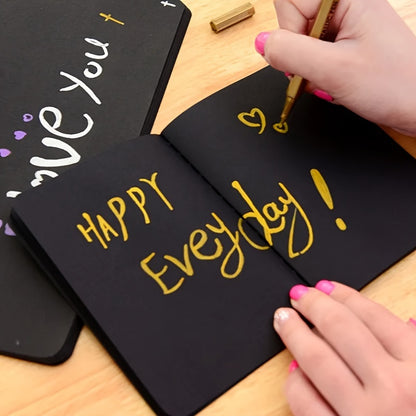 love
you
HAPPY
Evey day!